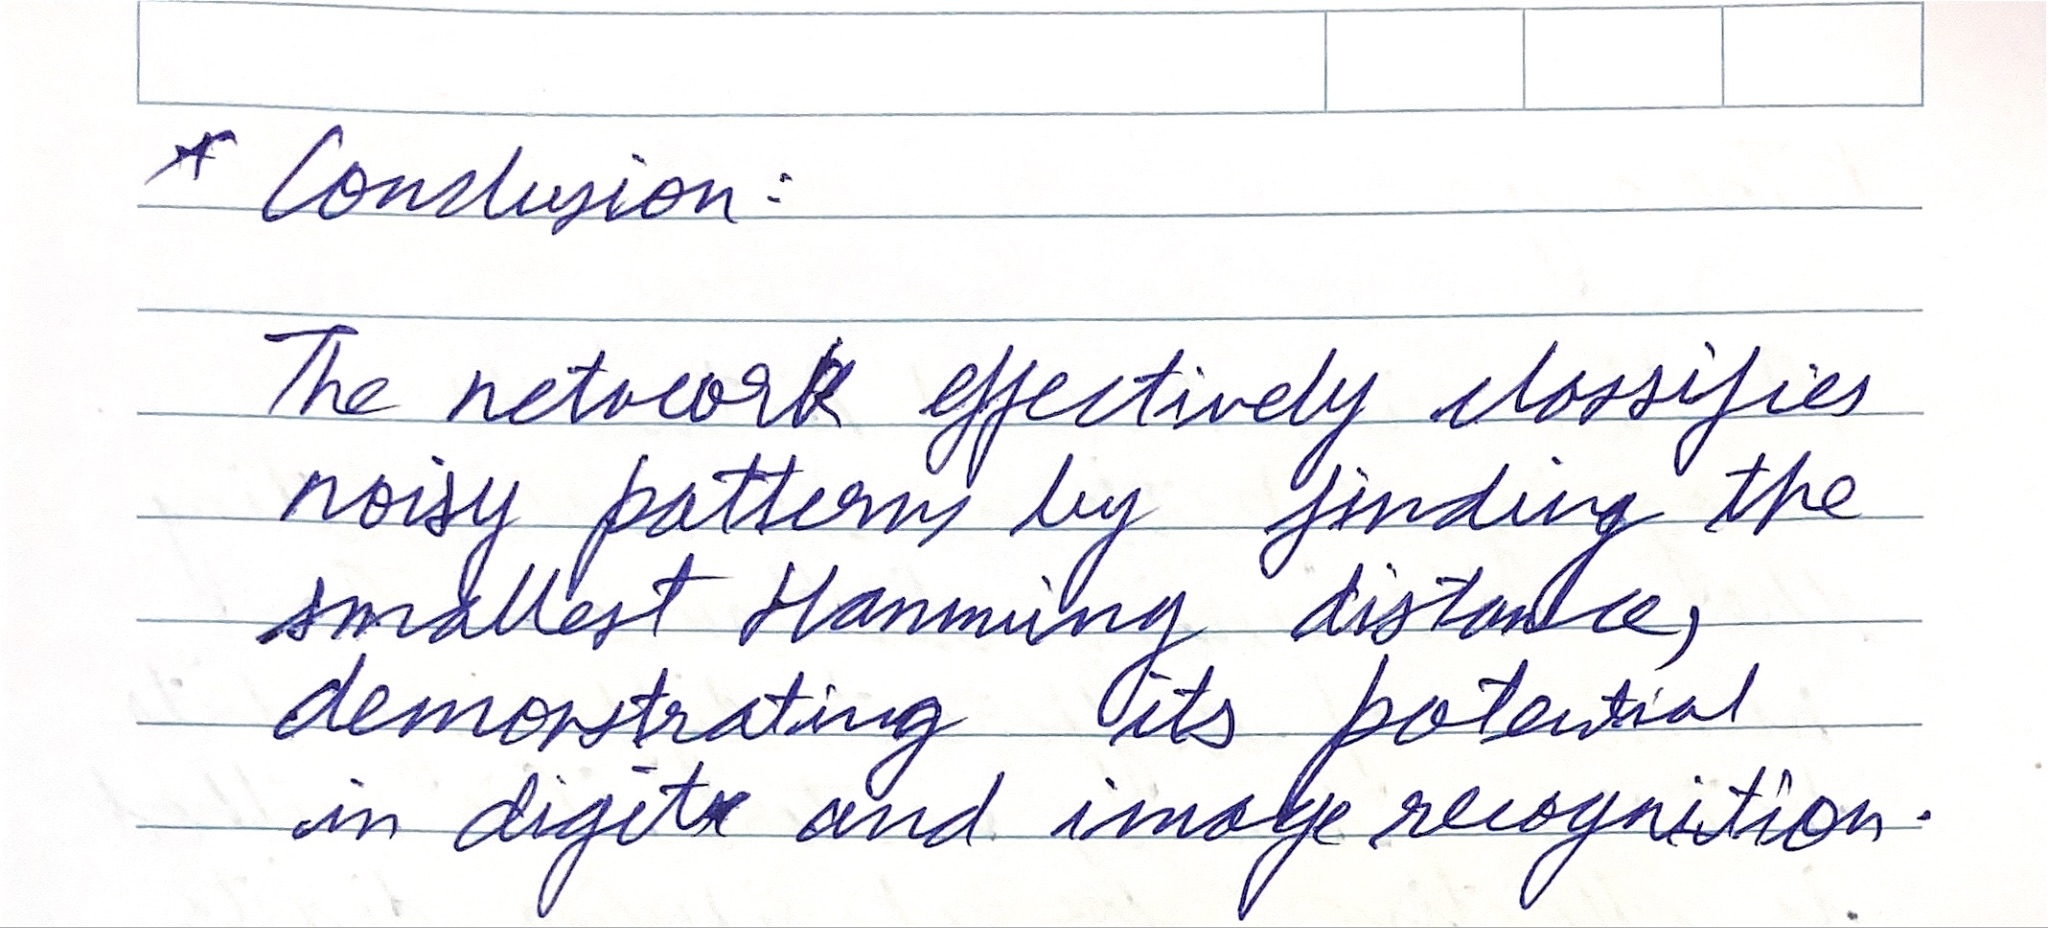 * Conclusion:
The network effectively classifies
noisy patterns by finding the
smallest Hamming distance,
demonstrating its potential
in digit and image recognition.